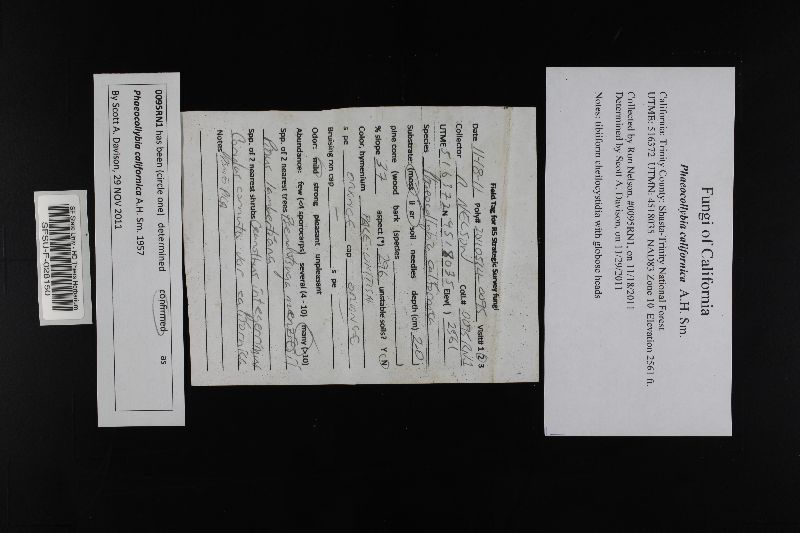 Fungi of California
Phaeocollybia californica A.H. Sm.
California: Trinity County: Shasta-Trinity National Forest
UTME: 516372 UTMN: 4518035 NAD83 Zone 10 Elevation 2561 ft.
Collected by Ron Nelson, #0095RN1, on 11/18/2011
Determined by Scott A. Davison, on 11/29/2011
Notes: tibiiform cheilocystidia with globose heads
Field Tag for R5 Strategic Survey fungi
Date 11-18-11 Poly# Visit# 1 2 3
Collector R. NELSON Coll.# 0095RN1
UTME 516372 N 4518035 Elev( ) 2561
Species Phaeocollybia californica
Substrate: (moss soil needles depth (cm) 2.0
pine cone (wood bark (species
% slope 37 aspect (°) 296 unstable soils? Y N
Color, hymenium PALE-WHITISH
s pe ORANGE cap ORANGE
Bruising rxn cap s pe
Odor: mild strong pleasant unpleasant
Abundance: few (<4 sporocarps) several (4 - 10) many (>10)
Spp. of 2 nearest trees Pseudotsuga menziesii
Pinus lambertiana
Spp. of 2 nearest shrubs Ceanothus integerrimus
Corylus cornuta var californica
Notes
0095RN1 has been (circle one) determined confirmed as
Phaeocollybia californica A.H. Sm. 1957
By Scott A. Davison, 29 NOV 2011
SF State Univ. - HD Thiers Herbarium
SFSU-F-028150